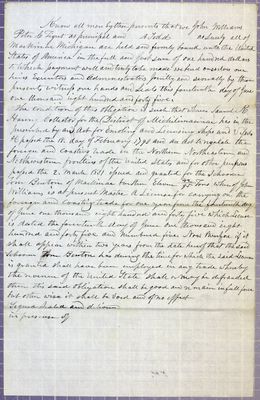 Know all men by these presents that we John Williams
Peter C. as principal and A. Todd as Surety all of
Mackinac Michigan are held and firmly bound unto the United
States of America in the full and just sum of one hundred dollars
to Which payment well and truly to be made, we bind ourselves our
heirs Executors and Administrators jointly and severally by these
presents witness our hands and seals this fourteenth day of June
one thousand eight hundred and forty five.
The Condition of this obligation is such that Whereas Samuel K.
Haring Collector for the District of Michilimackinac has in the
pursuance of an Act for Enrolling and Licensing Ships and Vessels
&c passed the 18 day of February 1793 and an Act to regulate the
foreign and Coasting trade on the Northern Northeastern and
Northwestern frontiers of the United States and for other purposes
passed the 2. March 1831 issued and granted to the Schooner
Benton of Mackinac burthen Eleven tons of which John
Williams is at present Master, a License for carrying on the
foreign and Coasting trade for one year from the fourteenth day
of June one thousand eight hundred and forty five which License
is dated the fourteenth day of June one thousand eight
hundred and forty five and Numbered five Now Therefore if it
shall appear within two years from the date hereof that the said
Schooner Benton has during the time for which the said License
is granted shall have been employed in any trade whereby
the revenue of the United States shall or may be defrauded
then this said obligation shall be good and remain in full force
but other wise it shall be void and of no effect
Signed Sealed and delivered
in presence of